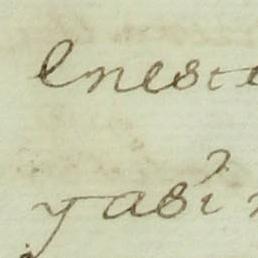 enest
yasi